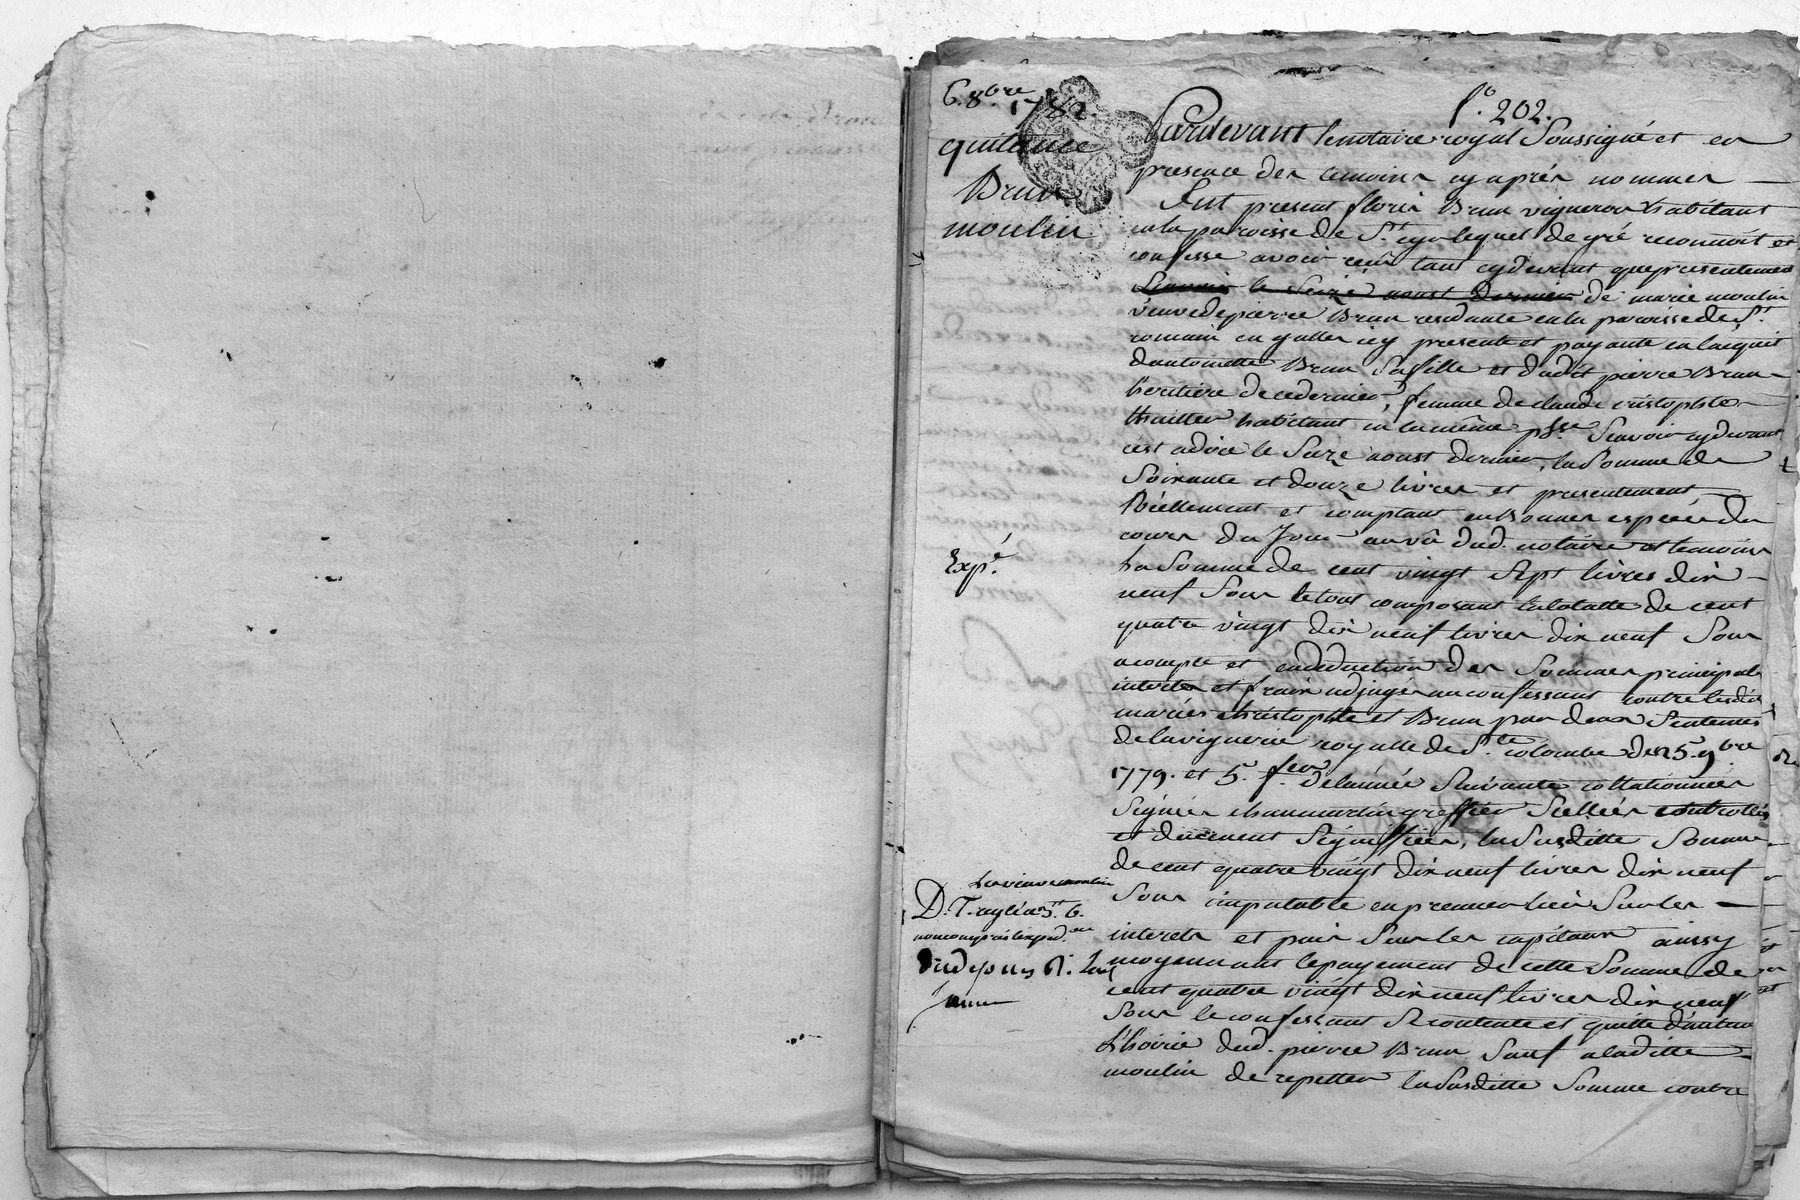 6. 8bre 1782.
quittance
Brun
moulin
fo. 202.
Pardevant le notaire royal Soussigné et en
presence des temoins cy après nommes
fut present floris Brun vigneron habitant
en la paroisse de St. cyr lequel de gré reconnoit et
confesse avoir reçu tant cydevant que presentement
le Seize aoust dernier de marie moulin
veuve de pierre Brun residante en la paroisse de St.
romain en galler icy presente et payante en lacquit
dantoinette Brun Sa fille et dudit pierre Brun
heritiere de cedernier, femme de claude cristophle
habitant en la même psse Scavoir cydevant
cest adire le Seize aoust dernier, la Somme de
Soixante et douze livres et presentement
Réellement et comptant en Bonnes especes du
cours du Jour au vû dud. notaire et temoins
La Somme de cent vingt Sept livres dix
neuf Sous le tout composant la totalle de cent
quatre vingt dix neuf livres dix neuf Sous
acompte et endeduction des Sommes principal
interets et frais adjugés au confessant contre lesdits
mariés christophle et Brun par deux Sentences
de la viguerie royalle de Ste. colombe des 25. 9bre
1779. et 5. fevr. delannée Suivante collationnées
Signées chanmartin greffier Scellées controllées
et duement Signiffiées, la Susditte Somme
de cent quatre vingt dix neuf livres dix neuf
Sous imputable en premier lieu Sur les
interets et puis Sur les capitaux aussy
moyennant le payement de cette Somme de
cent quatre vingt dix neuf livres dix neuf
Sous le confessant Se contente et quitte d'autant
L'hoirie dud. pierre Brun Sauf a laditte
moulin de repetter la Susditte Somme contre
Expé.
La veuve moulin